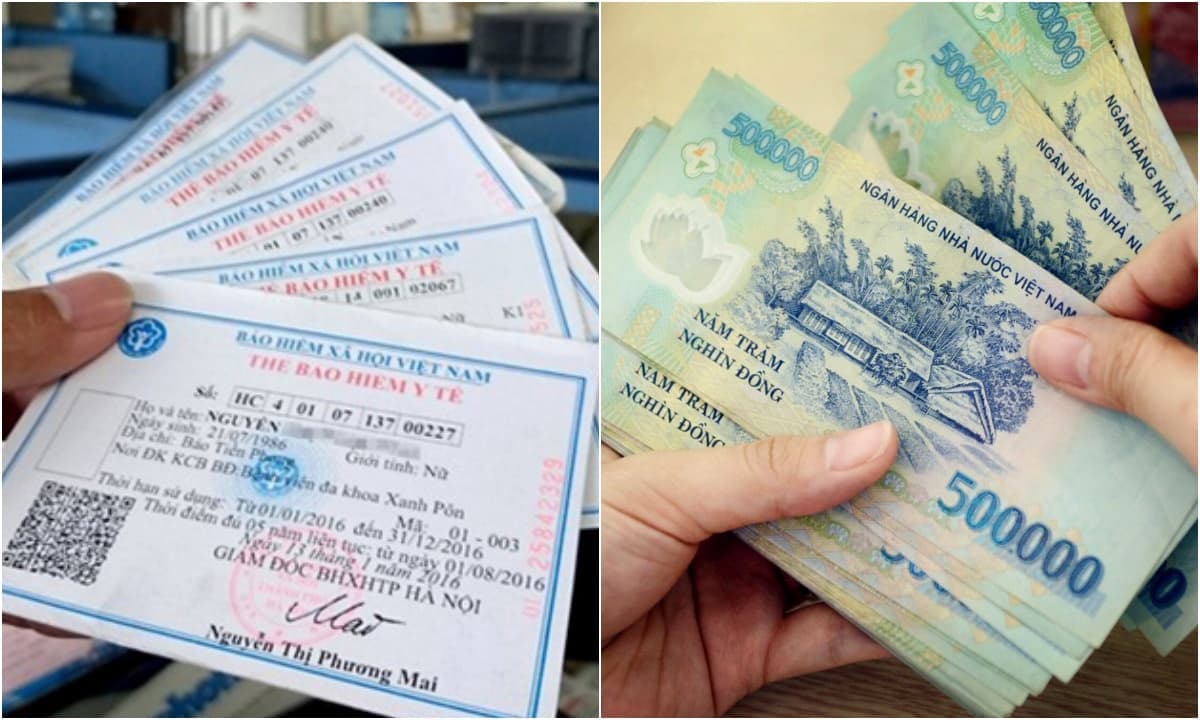 BẢO HIỂM XÃ HỘI VIỆT NAM
BẢO HIỂM XÃ HỘI VIỆT NAM
01 07 137 00240
BẢO HIỂM XÃ HỘI VIỆT NAM
THẺ BẢO HIỂM Y TẾ
01 07 137 00240
BẢO HIỂM XÃ HỘI VIỆT NAM
THẺ BẢO HIỂM Y TẾ
14 091 02067
Nữ
K1
BẢO HIỂM XÃ HỘI VIỆT NAM
THẺ BẢO HIỂM Y TẾ
Số: HC 4 01 07 137 00227
Họ và tên: NGUYỄN
Ngày sinh: 21/07/1986
Giới tính: Nữ
Địa chỉ: Báo Tiền
Nơi ĐK KCB BĐ: Bệnh viện đa khoa Xanh Pôn
Mã: 01 - 003
Thời hạn sử dụng: Từ 01/01/2016 đến 31/12/2016
Thời điểm đủ 05 năm liên tục: từ ngày 01/08/2016
Ngày 13 tháng 1 năm 2016
GIÁM ĐỐC BHXHTP HÀ NỘI
Nguyễn Thị Phương Mai
01 25842329
500000
500000
500000
NGÂN HÀNG NHÀ NƯỚC VIỆT NAM
NGÂN HÀNG NHÀ NƯỚC
NGÂN HÀNG NHÀ
NĂM TRĂM
NGHÌN ĐỒNG
NĂM TRĂM
NGHÌN ĐỒNG
500000